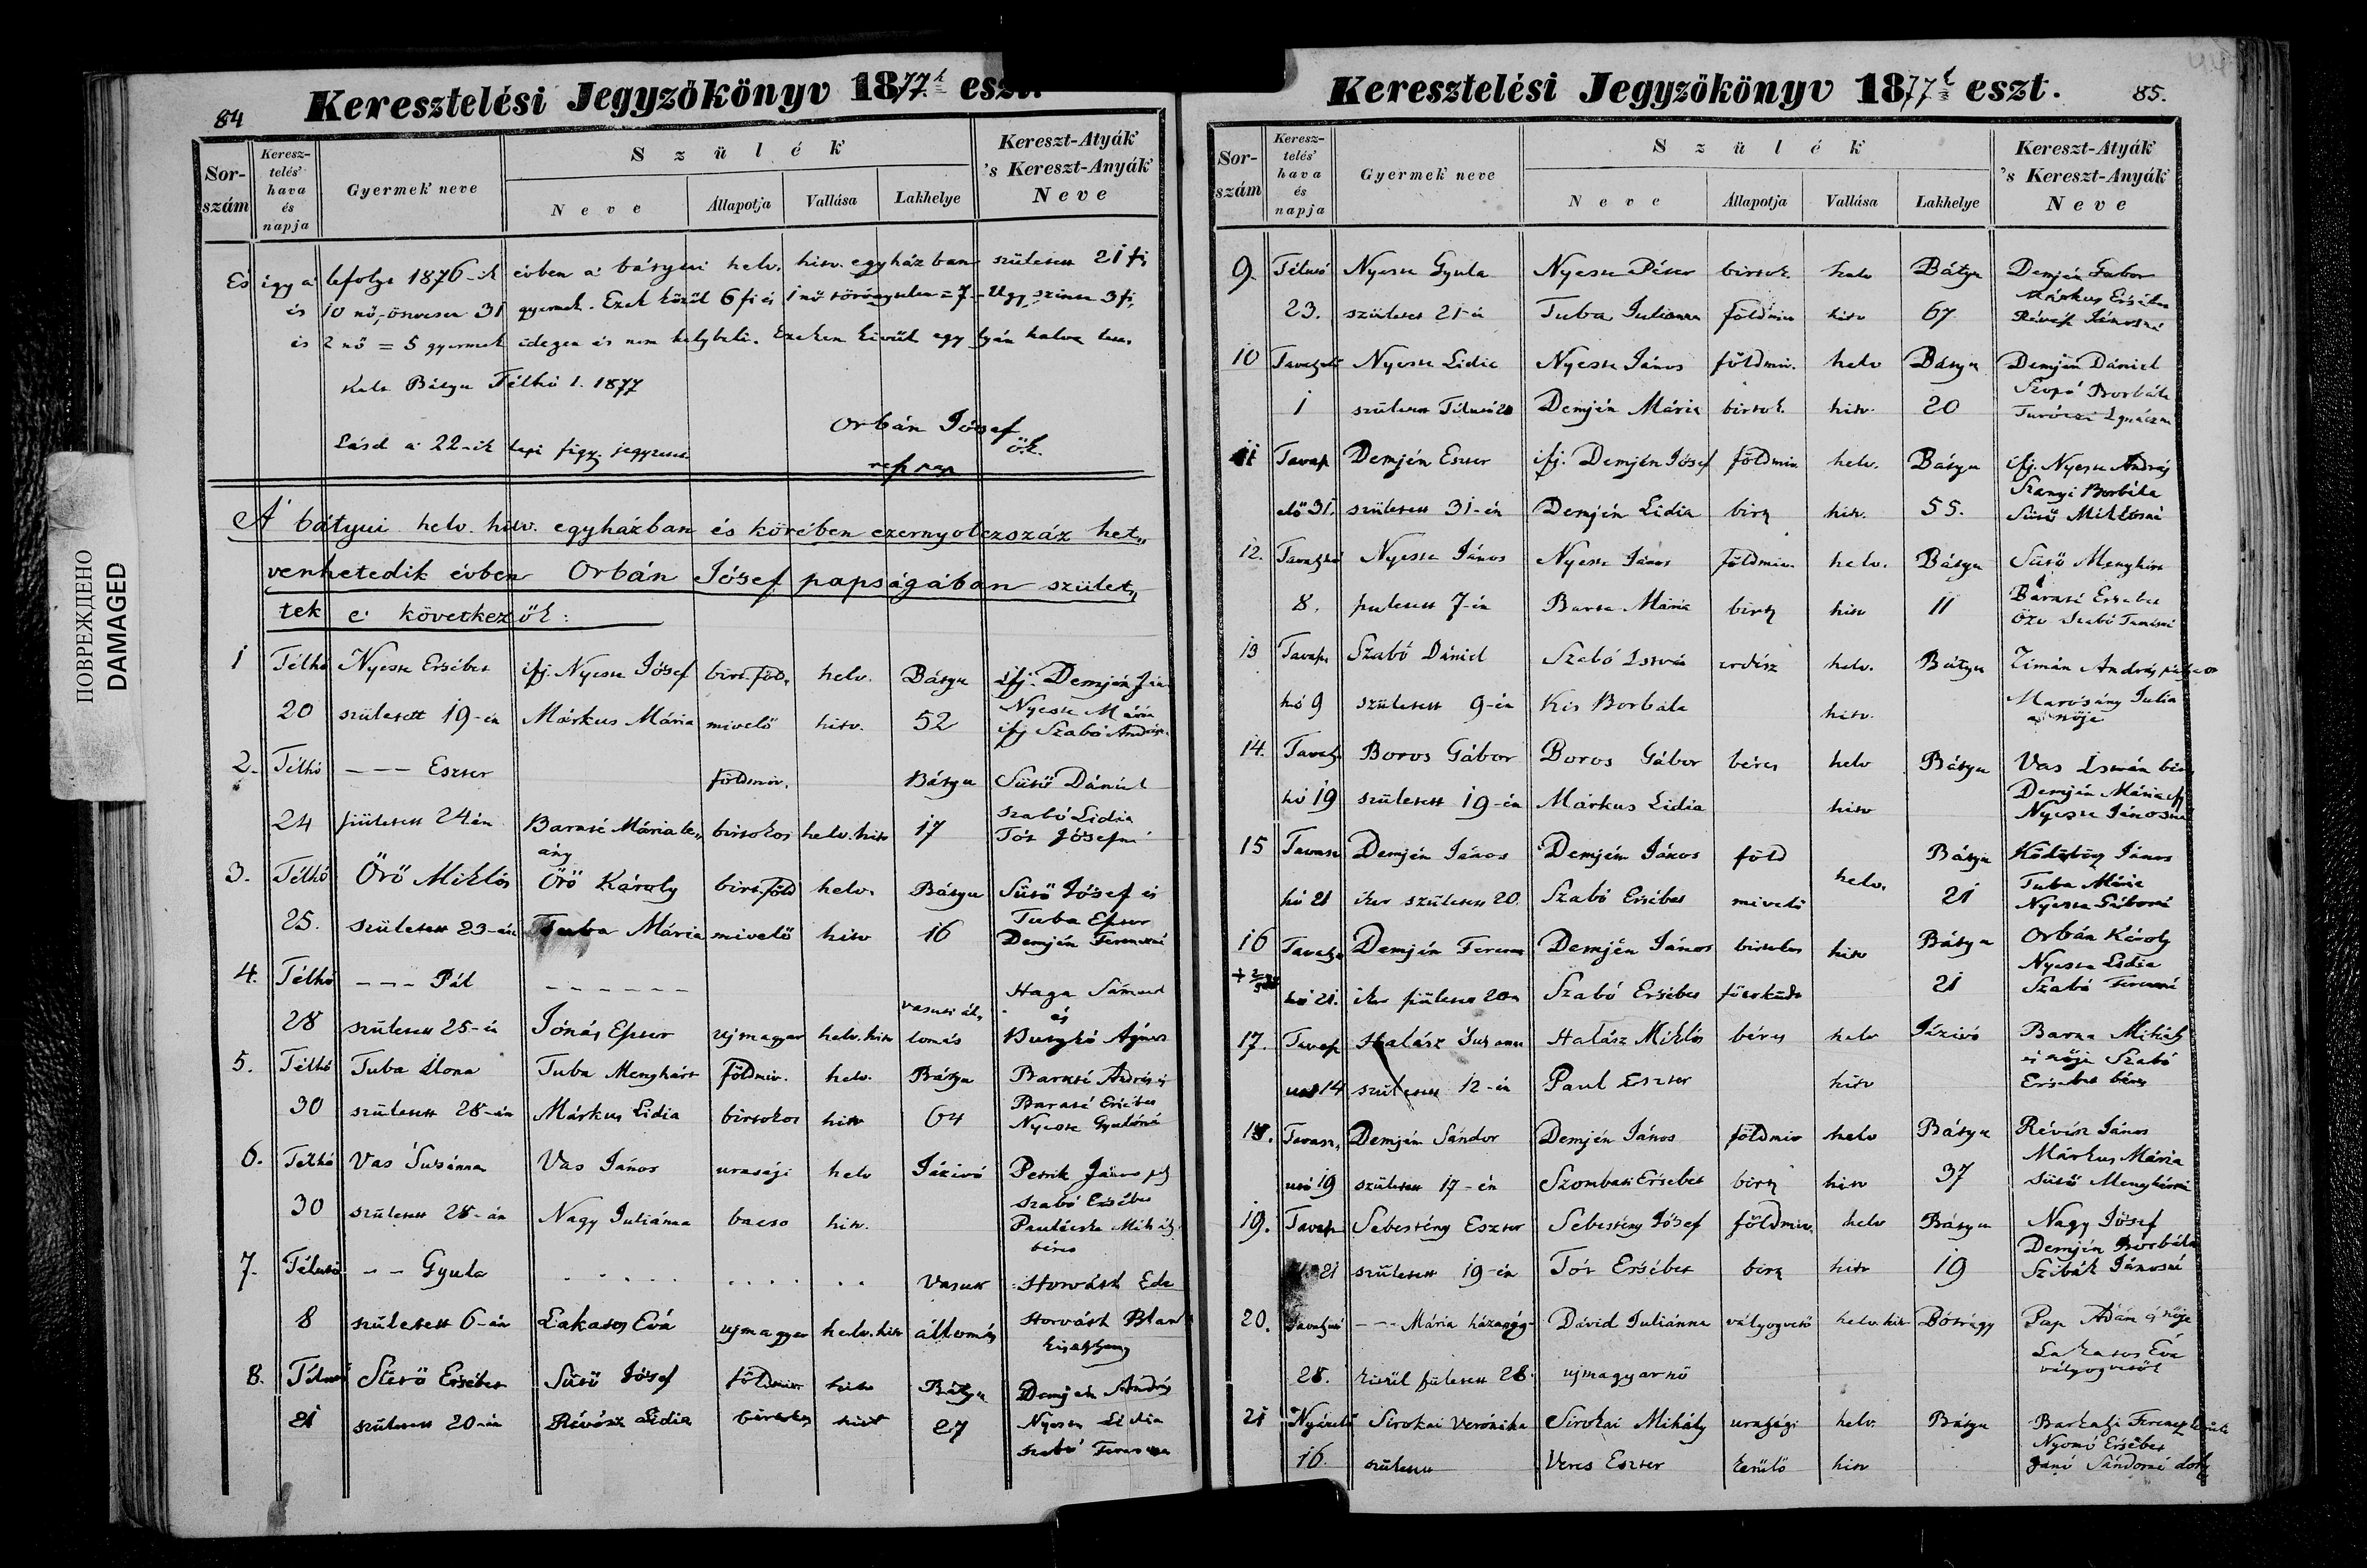 84
Keresztelési Jegyzőkönyv 1877 eszt.
Sor-szám
Keresz-telés' hava és napja
Gyermek neve
Szülék
Neve
Állapotja
Vallása
Lakhelye
Kereszt-Atyák 's Kereszt-Anyák Neve
És így a' lefolyt 1876-ik évben a' bátyui helv. hitv. egyházban született 21 fi,
és 10 nő, összesen 31 gyermek. Ezek közül 6 fi és 1 nő törvénytelen = 7 - Ugy szinte 3 fi,
és 2 nő = 5 gyermek idegen és nem helybeli. Ezeken kivül egy leány halva
Kelt Bátyu Télhó 1. 1877
Orbán Jósef
ref pap
ö.k.
Lásd a' 22-ik lapi figy. jegyzetet
A' bátyui helv. hitv. egyházban és körében ezernyolczszáz het„
venhetedik évben Orbán Jósef papságában szület„
tek e' következők:
1 Télhó Nyeste Ersébet ifj. Nyeste Jósef birt. föld„ helv. Bátyu ifj. Demjén
20 született 19-én Márkus Mária mivelő hitv. 52 Nyeste Mária
ifj Szabó
2. Télhó --- Eszter földmiv. Bátyu Sütő Dániel
24 született 24én Baraté Mária le„ birtokos helv. hitv 17 Szabó Lidia
ány Tót Jósefné
3. Télhó Örő Miklós Örő Károly birt. föld helv. Bátyu Sütő Jósef és
25. született 23-án Tuba Mária mivelő hitv 16 Tuba Eszter
Demjén Ferenczné
4. Télhó --- Pál ------ Haga Sámuel
vasuti ál„ és
28 született 25-én Jónás Eszter ujmagyar helv. hitv lomás Buszkó Ágnes
5. Télhó Tuba Ilona Tuba Menyhárt földmiv. helv. Bátyu Baraté András
30 született 28-án Márkus Lidia birtokos hitv 64 Baraté Ersébet
Nyeste
6. Télhó Vas Susánna Vas János urasági helv Jázivó Petrik János
30 született 28-án Nagy Juliánna bacso hitv. Szabó Ersébet
Mihály
béres
7. Télutó -- Gyula ..... .... .. Vasut Horváth Ede
8 született 6-án Lakatos Évá ujmagyar helv. hitv állomás Horváth
8. Télutó Sütő Ersébet Sütő Jósef földmiv hitv Bátyu Demjén András
21 született 20-án Révész Lidia birtokos hitv 27 Nyeste Lidia
Szabó Ferenczné
ПОВРЕЖДЕНО
DAMAGED
Keresztelési Jegyzőkönyv 1877 eszt.
85.
Sor-szám
Keresz-telés' hava és napja
Gyermek neve
Szülék
Neve
Állapotja
Vallása
Lakhelye
Kereszt-Atyák 's Kereszt-Anyák Neve
9. Télutó Nyeste Gyula Nyeste Péter birtok. helv Bátyu Demjén Gabor
23. született 21-én Tuba Julianna földmiv hitv 67 Márkus Ersébet
Révész Jánosné
10 Tavaszelő Nyeste Lidia Nyeste János földmiv. helv Bátyu Demjén Dániel
1 született Télutó 28 Demjén Mária birtok. hitv. 20 Szopó Borbála
11 Tavasz Demjén Eszter ifj. Demjén Jósef földmiv. helv. Bátyu ifj. Nyeste András
elő 31. született 31-én Demjén Lidia birt hitv. 55. Szanyi Borbála
Sütő Miklósné
12. Tavaszhó Nyeste János Nyeste János földmiv. helv. Bátyu Sütő Menyhért
8. született 7-én Barta Mária birt hitv 11 Baraté Ersebet
Özv Szabó Tamásné
13 Tavasz Szabó Dániel Szabó István erdész helv. Bátyu Timán András
hó 9 született 9-én Kis Borbala hitv. Marosány Julia
a' nője
14. Tavasz Boros Gábor Boros Gábor béres helv Bátyu Vas István
hó 19 született 19-én Márkus Lidia hitv Demjén Mária
Nyeste Jánosné
15 Tavasz Demjén János Demjén János föld helv. Bátyu Ködöböz János
hó 21 iker született 20. Szabó Ersébet mivelő 21 Tuba Mária
Nyeste Gáborné
16 Tavasz Demjén Ferencz Demjén János birtokos hitv Bátyu Orbán Károly
hó 21. iker született 20án Szabó Ersébet 21 Nyeste Lidia
Szabó Ferenczné
17. Tavasz Halász Susanna Halász Miklós béres helv Jázivó Barna Mihály
utó 14 született 12-én Paul Eszter hitv és nője Szabó
Ersebet béres
18. Tavasz„ Demjén Sándor Demjén János földmiv helv Bátyu Révész János
utó 19 született 17-én Szombati Ersebet birt hitv 37 Márkus Mária
Sütő Menyhértné
19. Tavasz Sebestény Eszter Sebestény Jósef földmiv. helv Bátyu Nagy Jósef
21 született 19-én Tót Ersébet birt hitv 19 Demjén Borbála
Szibák Jánosné
20. Tavaszutó --- Mária házasság- Dávid Juliánna vályogvető helv. hitv Bótrágy Pap Ádám és nője
28. kivül született 28. ujmagyar nő Lakatos Éva
vályogvetők
21 Nyárelő Sirokai Verónika Sirokai Mihály urasági helv. Bátyu Barkaszi Ferencz kerülő
16. született Veres Eszter kerülő hitv Nyomó Ersébet
Sándorné